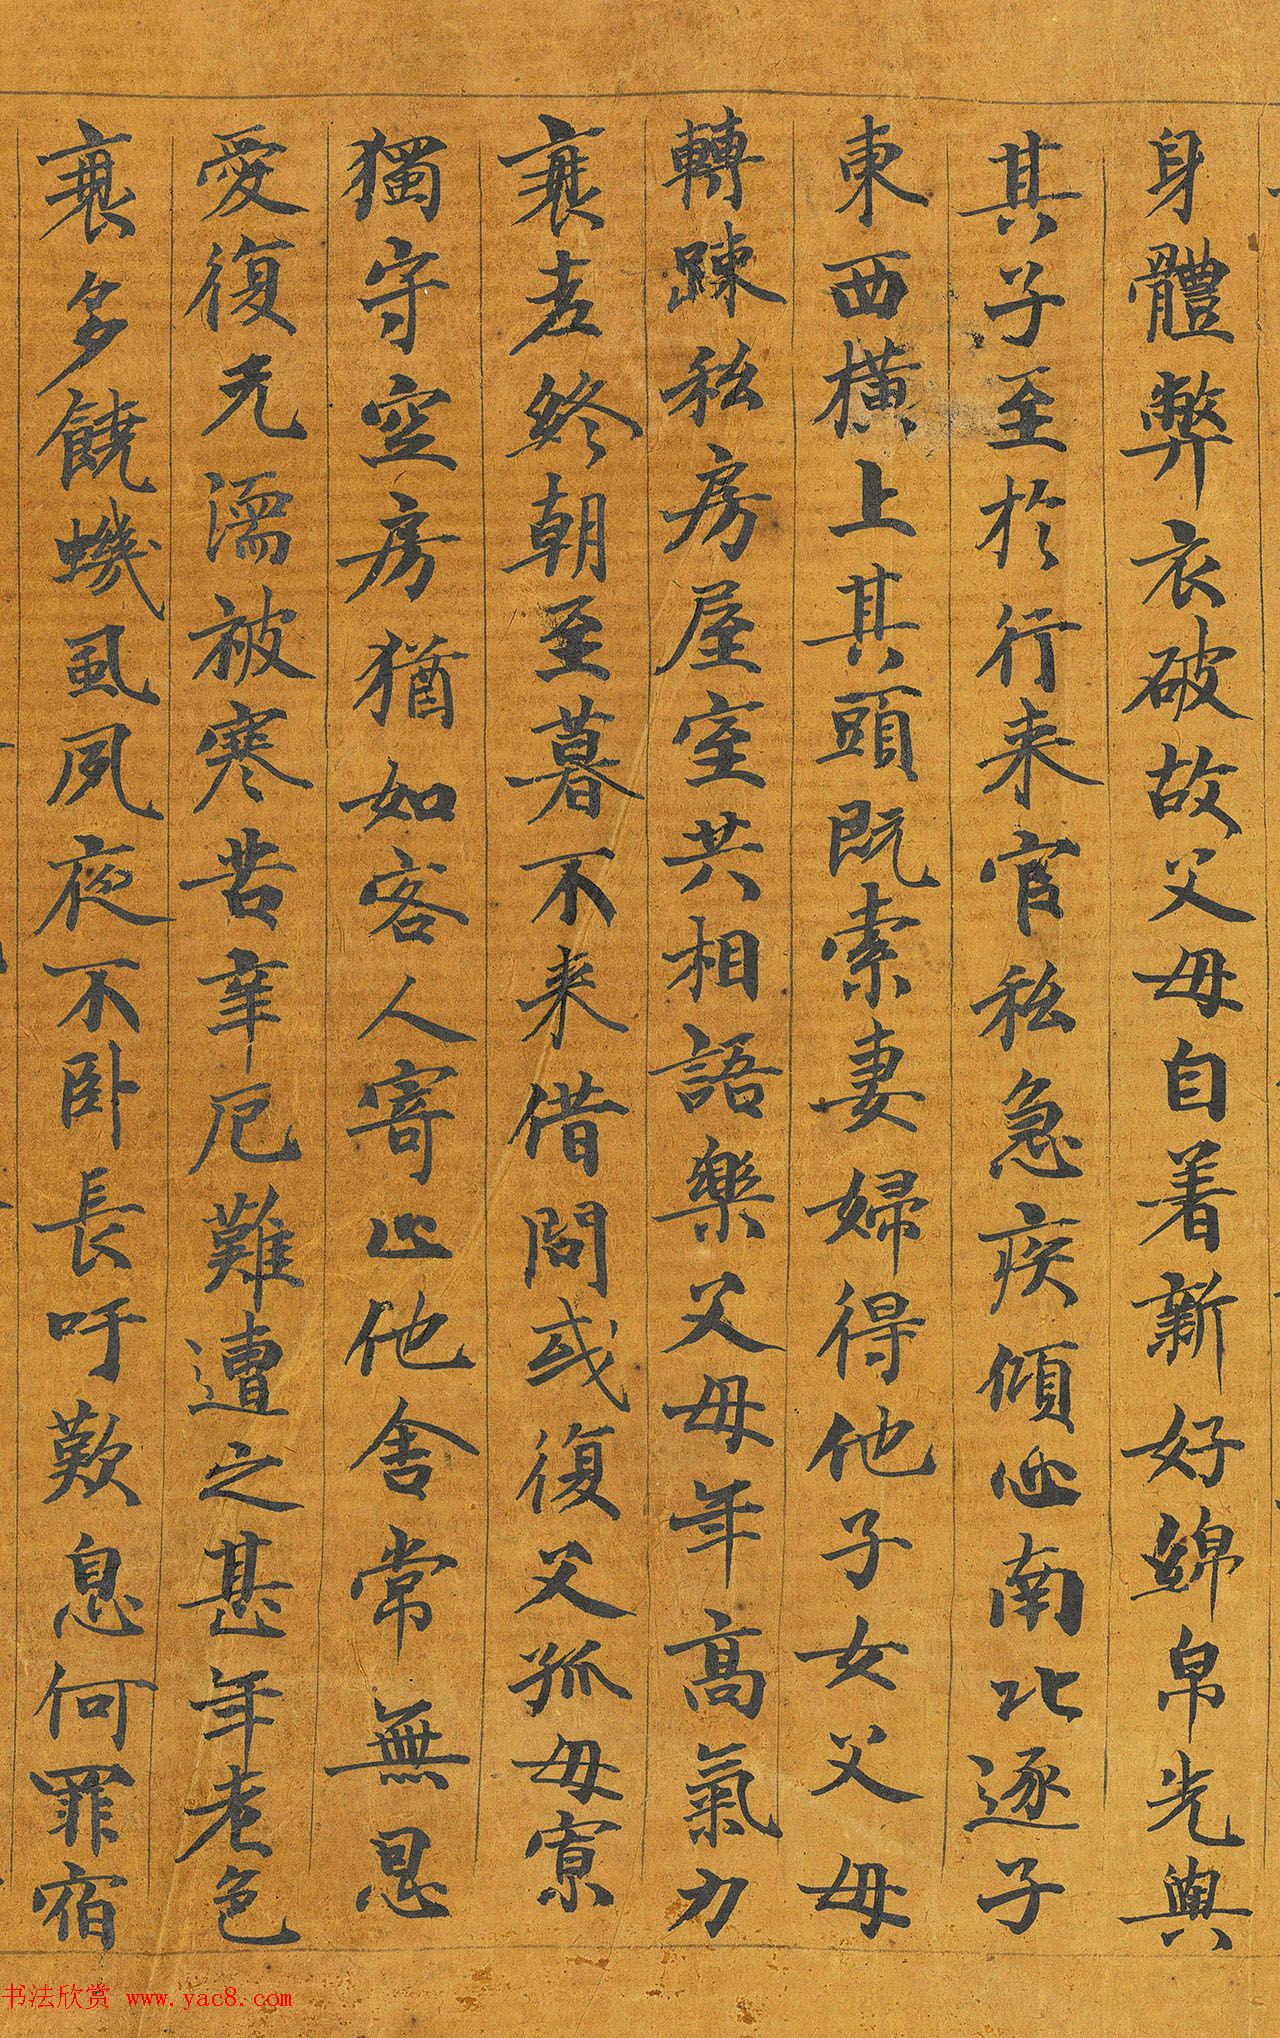 身體弊衣破故父母自着新好綿帛先與
其子至於行来官私急疾傾心南北逐子
東西橫上其頭既索妻婦得他子女父母
轉踈私房屋室共相語樂父母年高氣力
衰老終朝至暮不来借問或復父孤母寡
獨守空房猶如客人寄止他舍常無恩
愛復无濡被寒苦辛厄難遭之甚年老色
衰多饒蟣虱夙夜不卧長吁歎息何罪宿
书法欣赏 www.yac8.com